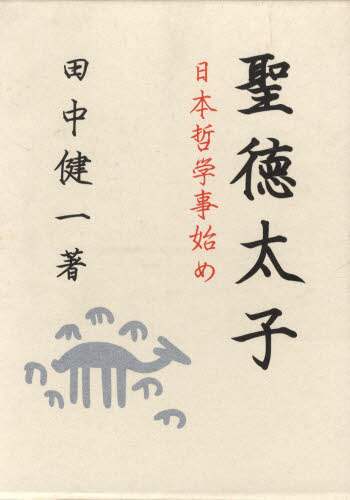 聖徳太子
日本哲学事始め
田中健一著